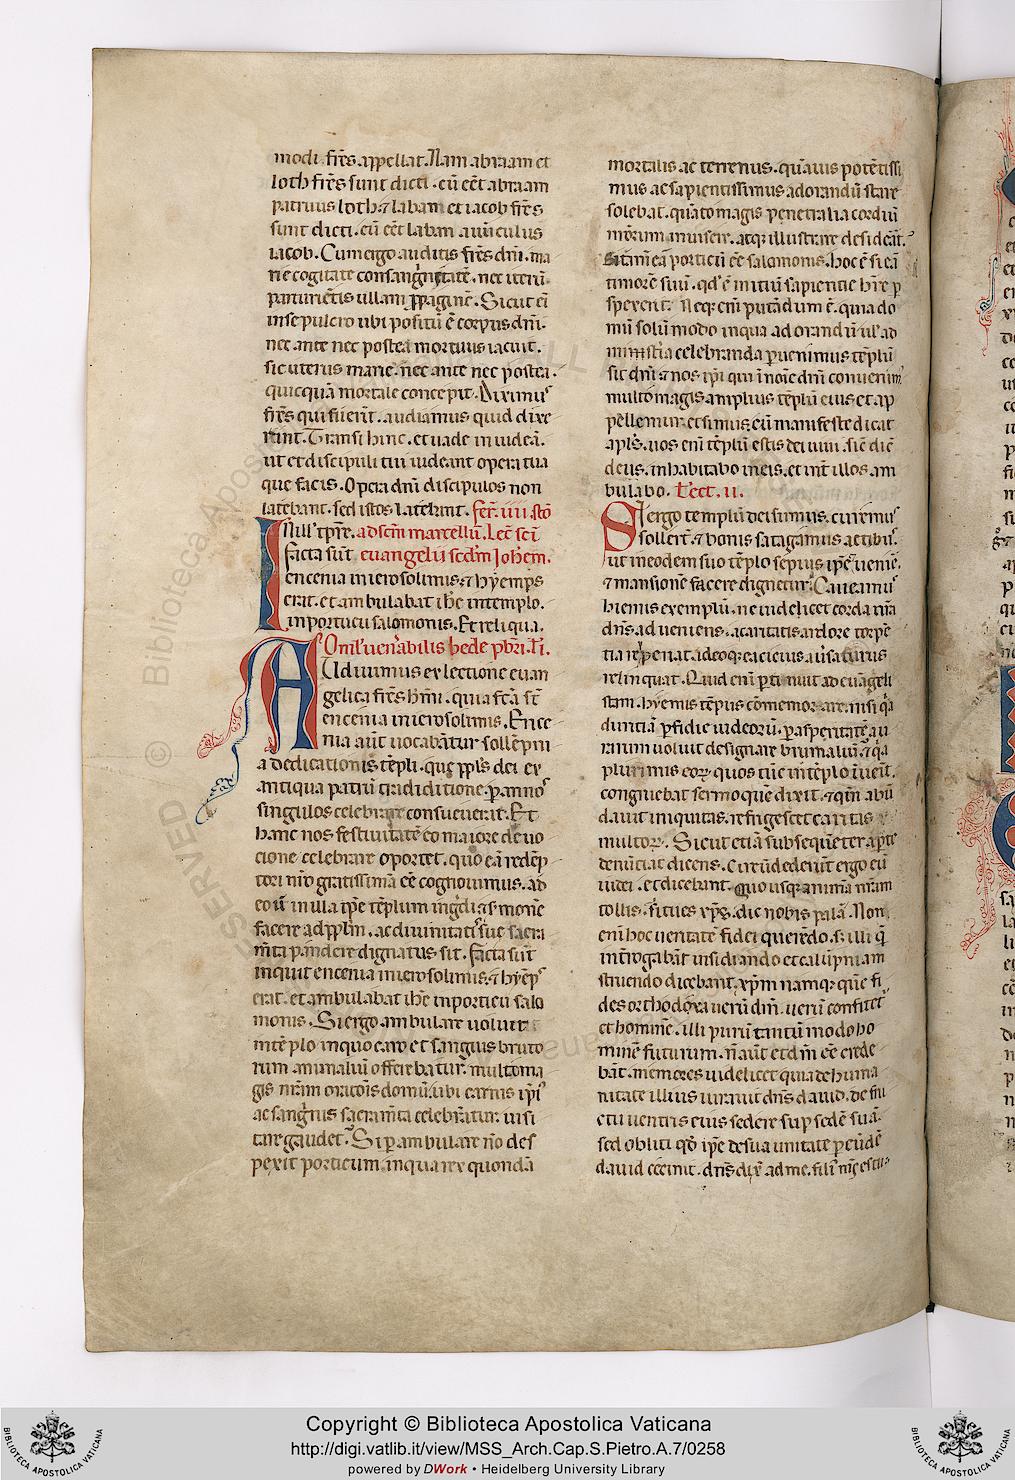 modi. fr̄es appellat. Nam abraam et
loth fr̄es sunt dicti. cū eēt abraam
patruus loth. ⁊ laban et iacob fr̄es
sunt dicti. cū eēt laban auūculus
iacob. Cum ergo auditis fr̄es dn̄i. ma
rie cogitate consanguītatē. nec iterū
parturiētis ullam ꝓpaginē. Sicut eī
in sepulcro ubi positū ē corpus dn̄i.
nec ante nec postea mortuus iacuit.
sic uterus marie. nec ante nec postea.
quicquā mortale concepit. Diximus
fr̄es qui fuer̄t. audiamus quid dixe
rint. Transi hinc. et uade in iudeā.
ut et discipuli tui uideant opera tua
que facis. Opera dn̄i discipulos non
latebant. sed istos latebant. fer̄. iiii. stō
In ill̓ tp̄re. ad scm̄ marcellū. Lec̄ sc̄i
facta sūt euangelii scd̄m Joh̄em.
encenia in ierosolimis. ⁊ hyemp̄s
erat. et ambulabat ih̄c in templo.
in porticu salomonis. Et reliqua.
Omł̓ uenābilis bede p̄bri. L̄. i.
Adiuimus ex lectione euan
gelica fr̄es kr̄mi. quia fc̄a st̄
encenia in ierosolimis. Ence
nia aūt uocabātur sollēpni
a dedicationis tēpli. que ppl̄s dei ex
antiqua patrū traditione. ꝑ annos
singulos celebrare consueuerat. Et
hanc nos festiuitatē eo maiore deuo
cione celebrare oportet. quo eā redēp
tori nr̄o gratissimā eē cognouimus.
facere ad ppl̄m. ac diuinitatis sue sacra
m̄ta pandere dignatus sit. Facta sūt
inquit encenia in ierosolimis. ⁊ hyēps
erat. et ambulabat ih̄c in porticu salo
monis. Si ergo ambulare uoluit
in tēplo in quo caro et sanguis bruto
rum animaliū offerebatur. multo ma
gis nr̄am orōnis domū. ubi carnis ip̄i
ac sanguinis sacram̄ta celebrātur. uisi
tare gaudet. Si ꝑambulare nō des
pexit porticum. in qua rex quondā
mortalis ac terrenus. quāuis potētissi
mus ac sapientissimus ad orandū stare
solebat. quāto magis penetralia cordiū
nr̄orum inuisere. atqꝫ illustrare desiderat.
eā porticū eē salomonis. hoc ē si eā
timorē suū. qd̓ ē initiū sapientie hr̄e ꝑ
spexerit. Neqꝫ enī putādum ē. quia do
mū solūmodo in qua ad orandū ul̓ ad
misteria celebranda ꝑuenimus tēplū
sit dn̄i. ⁊ nos ip̄i qui in noīe dn̄i conuenim̓
multo magis amplius tēplū eius et ap
pellemur et simus. cū manifeste dicat
apl̄s. uos enī tēplū estis dei uiui. sic̄ dic̄
deus. inhabitabo in eis. et int̄ illos am
bulabo. Lect. ii.
Si ergo templū dei sumus. curemus
sollert̄. ⁊ bonis satagamus actibus.
ut in eodem suo tēplo sepius ip̄e ueniē.
⁊ mansionē facere dignetur. Caueamus
hiemis exemplū. ne uidelicet corda nr̄a
dn̄s adueniens. a caritatis ardore torpē
tia repperiat. adeoqꝫ ea cicius auersatus
relinquat. Quid enī ꝑtinuit ad euāgeli
stam. hyemis tēpus cōmemorare. nisi qa
duritiā ꝑfidie iudeorū. ꝑ asperitatē au
rarum uoluit designare brumaliū. ⁊ qa
plurimis eorꝫ. quos tūc in tēplo īuēit.
congruebat sermo quē dixit. ⁊ qm̄ abū
dauit iniquitas. refrigescet caritas
multorꝫ. Sicut etiā subsequēter aꝑte
denūciat dicens. Circūdederūt ergo eū
iudei. et dicebant. Quousqꝫ animā nr̄am
tollis. Si tu es xp̄c. dic nobis palā. Non
enī hoc ueritatē fidei querēdo. s; illi q̄
int̄rogabāt insidiando et calūpniam
struendo dicebant. xp̄m namqꝫ quē fi
des orthodoxa uerū dm̄. uerū confitet̄
et hominē. illi purū tantūmodo ho
minē futurum. nō aūt et dm̄ eē crede
bāt. memores uidelicet quia de huma
nitate illius iurauit dn̄s dauid. de fru
ctu uentris eius sedere suꝑ sedē suā.
sed obliti qd̓ ip̄e de sua unitate ꝑ eūdē
dauid cecinit. dn̄s dix̄ ad me. fili̓ m̄s es tu
Copyright © Biblioteca Apostolica Vaticana
http://digi.vatlib.it/view/MSS_Arch.Cap.S.Pietro.A.7/0258
powered by DWork • Heidelberg University Library